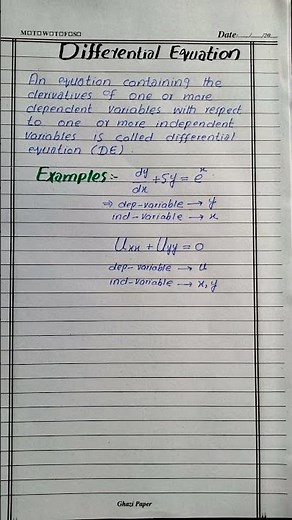 MOTOWOTOFOSO
Date: / /20
Differential Equation
An equation containing the
derivatives of one or more
dependent variables with respect
to one or more independent
variables is called differential
equation (DE).
Examples:- dy/dx + 5y = eˣ
⇒ dep-variable → y
ind-variable → x
Uxx + Uyy = 0
dep-variable → u
ind-variable → x, y
Ghazi Paper